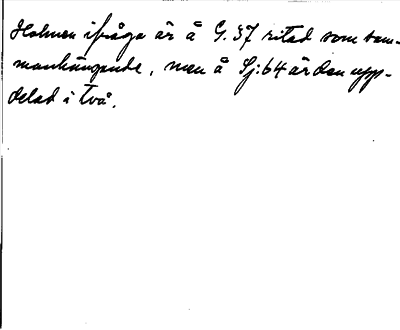 Holmen ifråga är å G. 37 ritad som sam-
manhängande, men å Sj:64 är den upp-
delad i två.